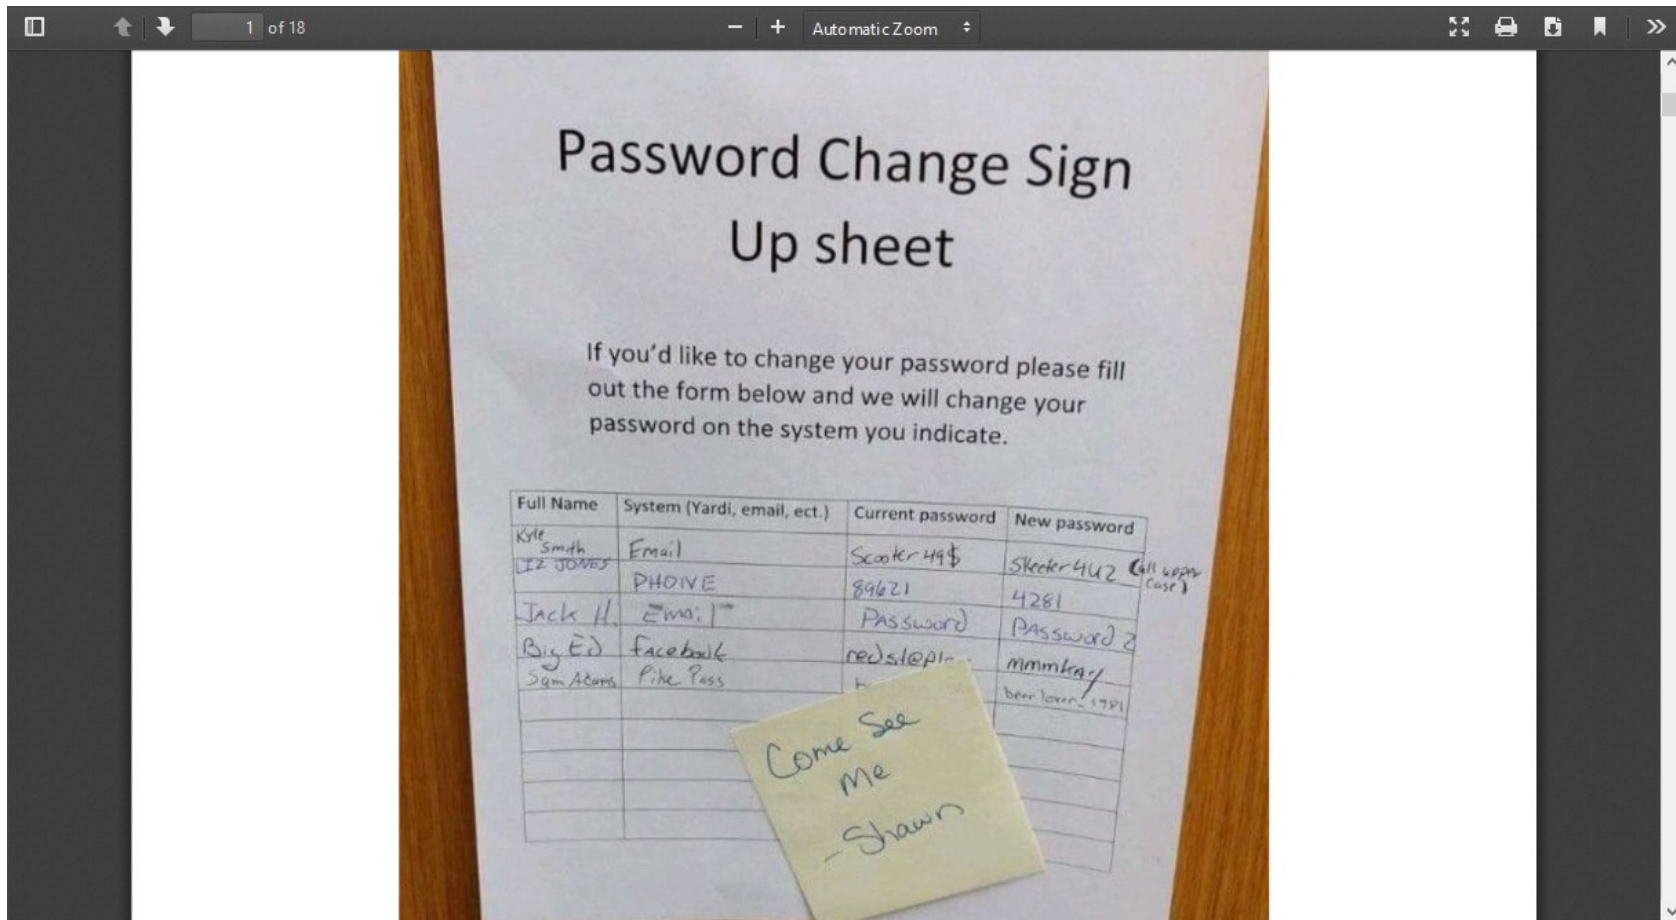 1 of 18
Automatic Zoom
Password Change Sign
Up sheet
If you'd like to change your password please fill
out the form below and we will change your
password on the system you indicate.
Full Name System (Yardi, email, ect.) Current password New password
Kyle Smith Email Scooter49$ Skeeter4U2 (all upper case)
LIZ JONES PHONE 89621 4281
Jack H. Email PASSword PASSword 2
Big Ed facebook mmmkay
Sam Adams Pike Pass beer lover_1981
Come See
Me
- Shawn